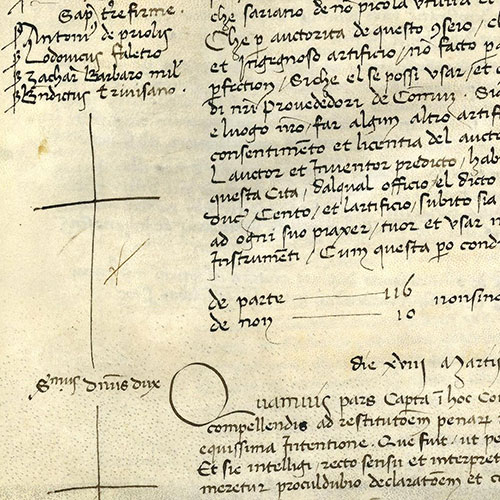 Sap. t're firme.
Antoni' de priolis
Lodouicus faletro
Zachar' Barbaro mil'
Bndictus triuisano.
che sariano de no picola vtilita
Che p auctorita de questo 9seio, el
et ingegnoso artificio, no facto p
pfection, Siche el se possi vsar, et
di nri Prouededori de Comun. Si
e luogo nro, far algun altro artif
consentimento et licentia del aucto
L auctor et Inuentor predicto, hab
questa Cita, dalqual officio, el dicto
duc. Cento, et lartificio, subito sia
ad ogni suo piaxer, tuor et vsar n
Instrumenti, Cum questa po cond
de parte 116 nonsinc
de non 10
die xviii Martii
Smus dnus dux
Quamuis pars Capta i hoc Co
compellendis ad restitutoem penar
equissima Intentione. Que fuit, ut pe
Et sic intelligi, recto sensu et interpret
meretur proculdubio declaratoem et